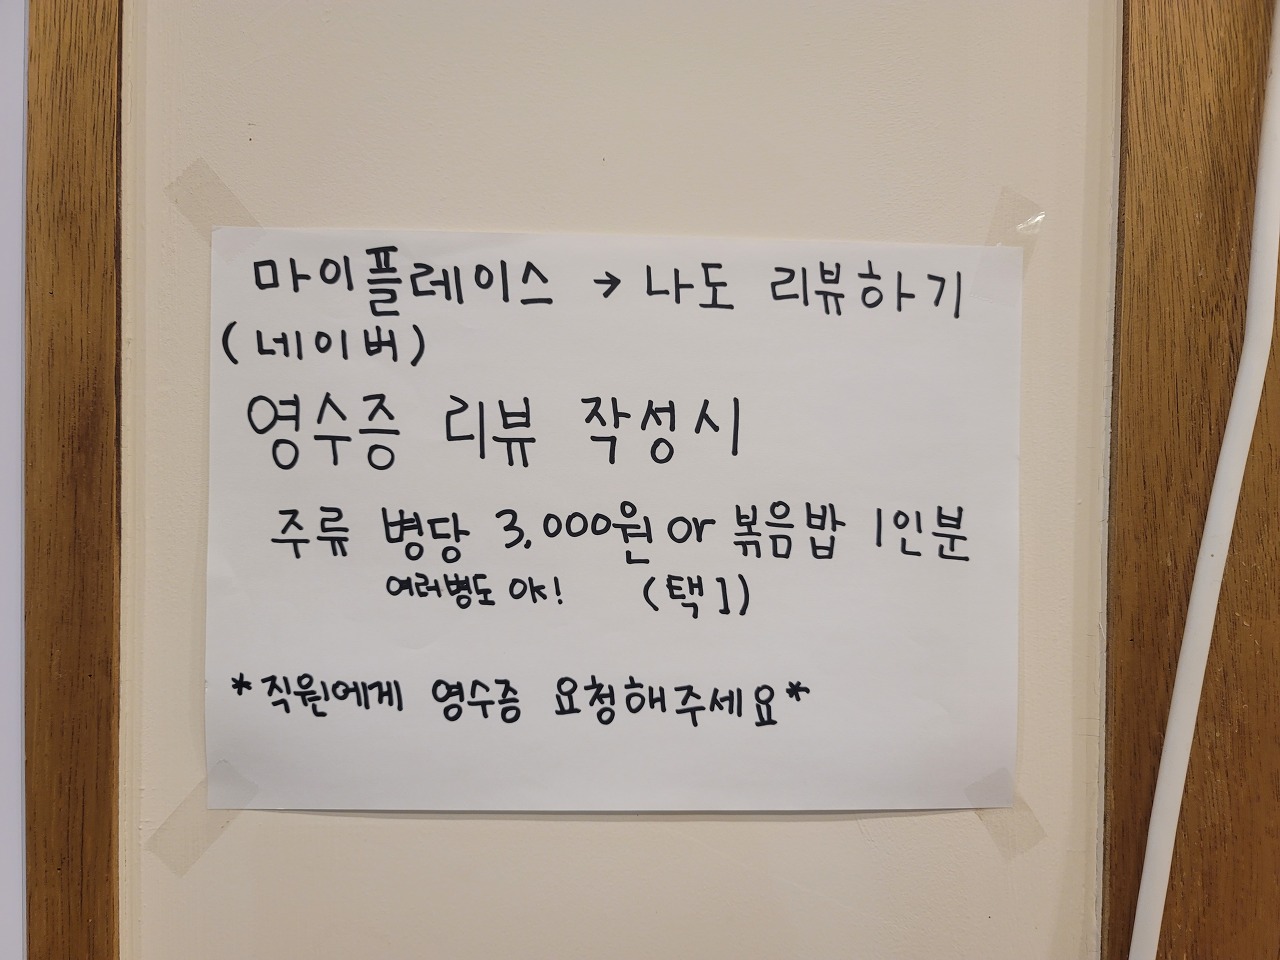 마이플레이스 → 나도 리뷰하기
(네이버)
영수증 리뷰 작성시
주류 병당 3,000원 or 볶음밥 1인분
여러병도 OK! (택1)
*직원에게 영수증 요청해주세요*